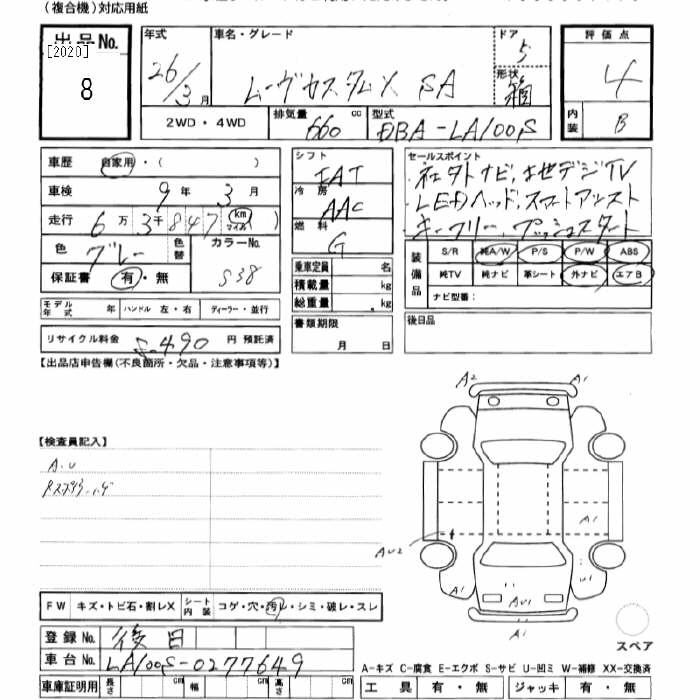 (複合機)対応用紙
出品No.
[2020]
8
年式
26/3月
車名・グレード
ムーヴカスタムX SA
ドア
5
形状
箱
評価点
4
内装
B
2WD・4WD
排気量
660 cc
型式
DBA-LA100S
車歴 自家用・( )
車検 9年 3月
走行 6万 3千 847 km マイル )
色 グレー 色替 カラーNo. S38
保証書 有・無
モデル年式 年 ハンドル 左・右 ディーラー・並行
リサイクル料金 8.490 円 預託済
シフト
IAT
冷房
AAC
燃料
G
乗車定員 名
積載量 kg
総重量 kg
書類期限
月 日
セールスポイント
社外ナビ、地デジTV
LEDヘッド、スマートアシスト
キーフリー、プッシュスタート
装備品
S/R 純A/W P/S P/W ABS
純TV 純ナビ 革シート 外ナビ エアB
ナビ型番:
後日品
【出品店申告欄(不良箇所・欠品・注意事項等)】
【検査員記入】
A.U
A2
A1
A1
AU2
A1
U1
AU1
A1
FW キズ・トビ石・割レX シート内装 コゲ・穴・汚レ・シミ・破レ・スレ
登録No. 後日
車台No. LA100S-0277649
車庫証明用 長さ cm 幅 cm 高さ cm
スペア
A-キズ C-腐食 E-エクボ S-サビ U-凹ミ W-補修 XX-交換済
工具 有・無 ジャッキ 有・無